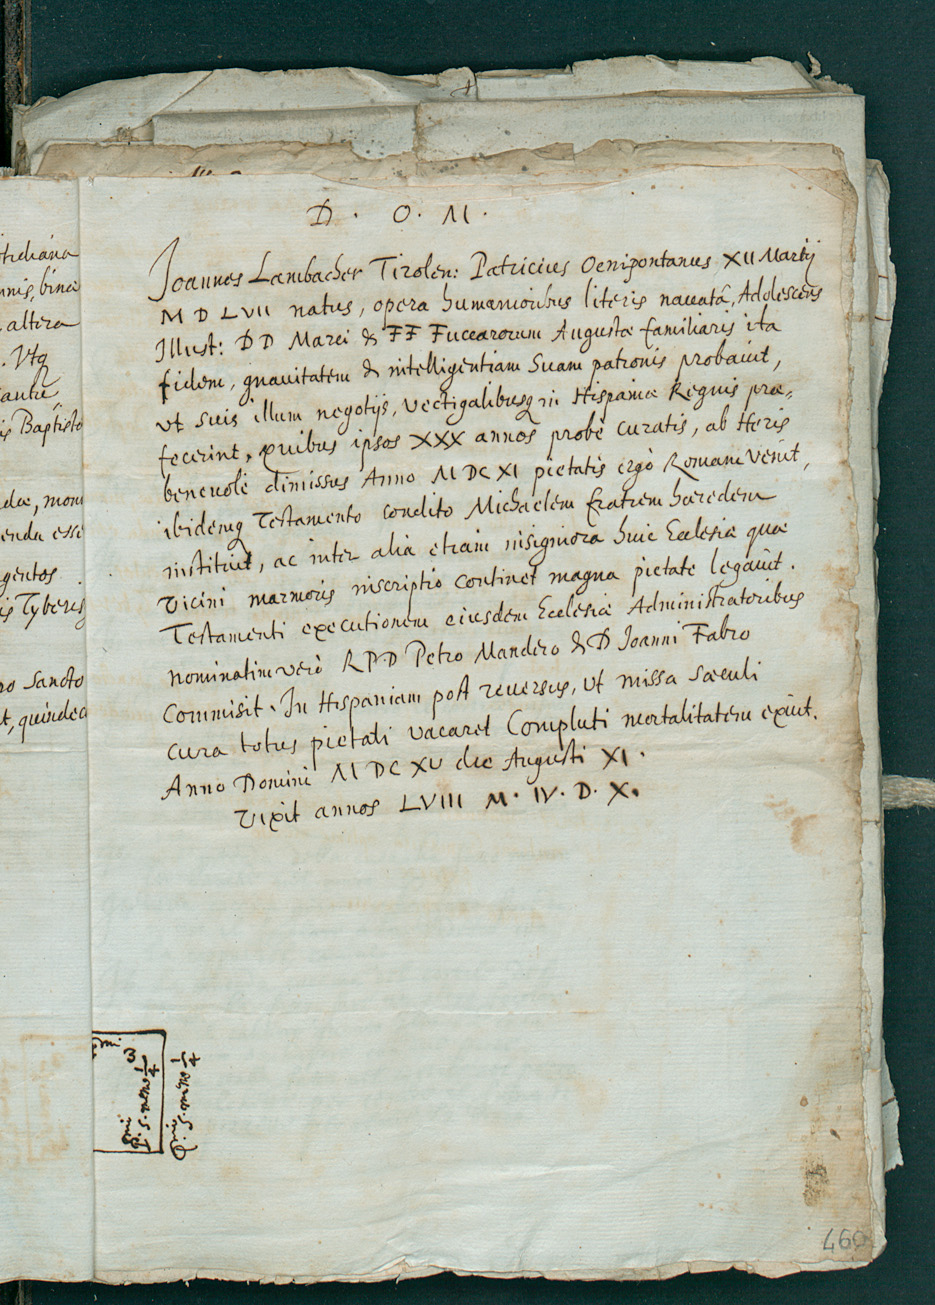 D. O. M.
Joannes Lambacher Tirolen: Patricius Oenipontanus XII Martij
MDLVII natus, opera humanioribus literis navatâ, Adolescens
Illust: DD Marci & FF Fuccarorum Augustae familiaris ita
fidem, gnavitatem & intelligentiam suam patronis probavit,
ut suis illum negotijs, vectigalibusq in Hispaniae Regnis prae-
fecerint, quibus ipsos XXX annos probè curatis, ab Heris
benevolè dimissus Anno MDCXI pietatis ergò Romam venit,
ibidemq Testamento condito Michaelem fratrem haeredem
instituit, ac inter alia etiam insigniora huic Ecclesiae quae
vicini marmoris inscriptio continet magna pietate legavit.
Testamenti executionem eiusdem Ecclesiae Administratoribus
nominatim verò RPD Petro Mandero & D Joanni Fabro
Commisit. In Hispaniam post reversus, ut missa saeculi
cura totus pietati vacaret Compluti mortalitatem exuit.
Anno Domini MDCXV die Augusti XI.
Vixit annos LVIII M. IV. D. X.
otidiana
altera
. Vtq
is Baptisto
dae, mon
enda esse
gentos
is Tyberis
ro Sancto
t, quindec
460